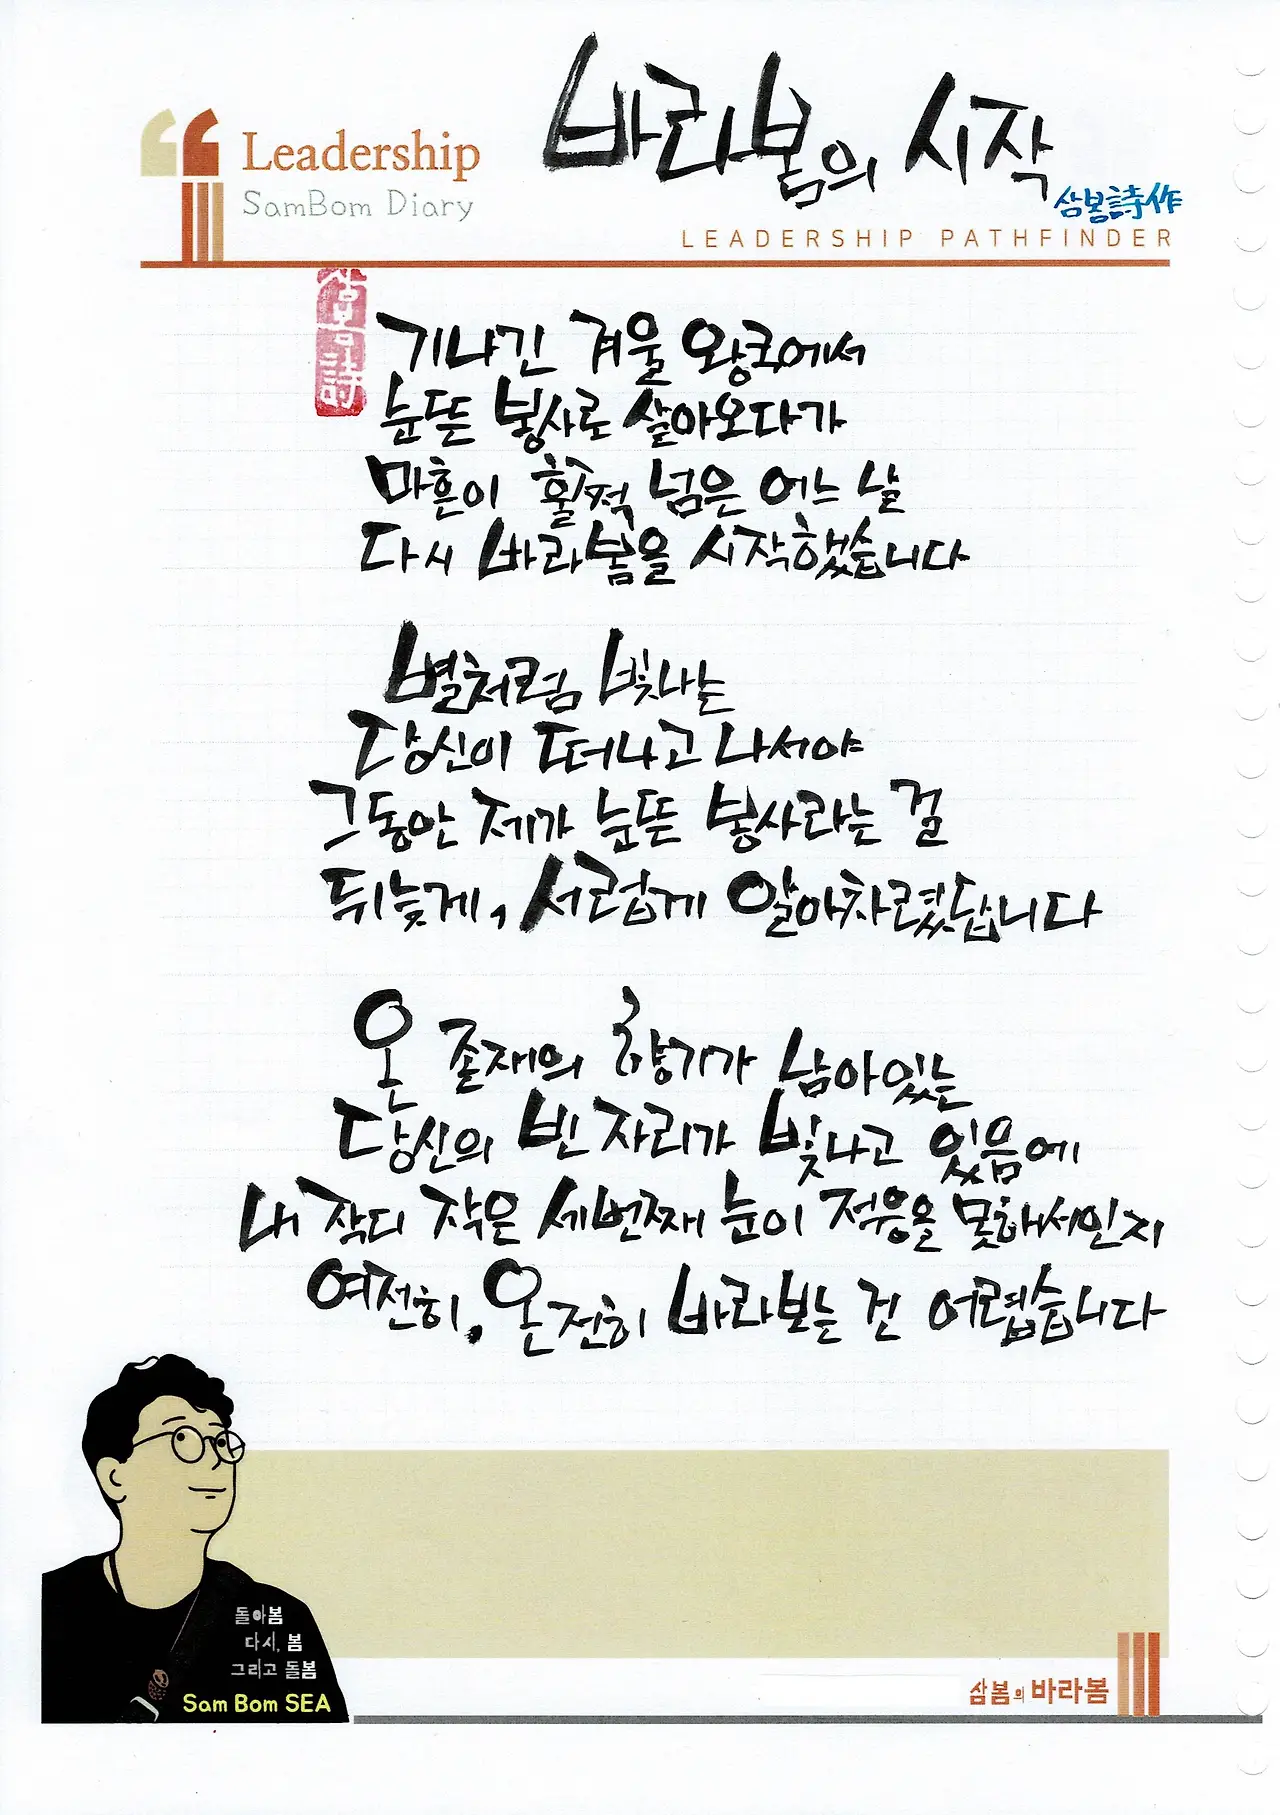 바라봄의 시작
삼봄詩作
Leadership
SamBom Diary
LEADERSHIP PATHFINDER
삼봄詩
기나긴 겨울 왕국에서
눈뜬 봉사로 살아오다가
마흔이 훌쩍 넘은 어느 날
다시 바라봄을 시작했습니다
별처럼 빛나는
당신이 떠나고 나서야
그동안 제가 눈뜬 봉사라는 걸
뒤늦게, 서럽게 알아차렸답니다
온 존재의 향기가 남아있는
당신의 빈 자리가 빛나고 있음에
내 작디 작은 세번째 눈이 적응을 못해서인지
여전히, 온전히 바라보는 건 어렵습니다
돌아봄
다시, 봄
그리고 돌봄
Sam Bom SEA
삼봄의 바라봄